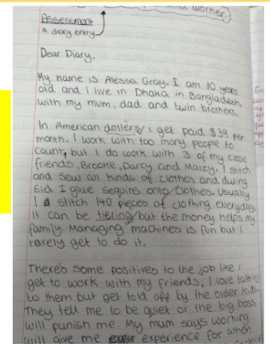 worker.)
Assessment
A diary entry
Dear Diary,
My name is Alessa Gray. I am 10 years
old and I live in Dhaka in Bangladesh
with my mum, dad and twin brothers.
In American dollers I get paid $39 per
month. I work with too many people to
count, but I do work with 3 of my close
friends, Brooke, Darcy and Maizy. I stitch
and sew all kinds of clothes and during
Eid I glue sequins onto clothes. Usually
I stitch 140 pieces of clothing everyday.
It can be tiering but the money helps my
family. Managing machines is fun but I
rarely get to do it.
There's some positives to the job like I
get to work with my friends, I love talking
to them but get told off by the older kids.
They tell me to be quiet or the big boss
will punish me. My mum says working
will give me experience for when